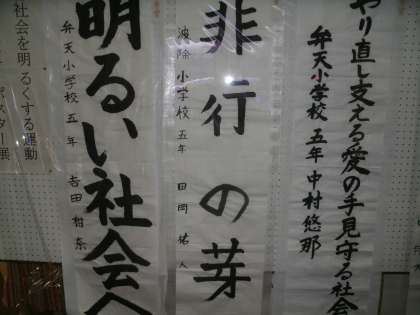 やり直し支える愛の手見守る社会
弁天小学校 五年 中村悠那
非行の芽
波除小学校 五年 田岡 祐人
明るい社会へ
弁天小学校 五年 吉田 柑奈
社会を明るくする運動
ター展